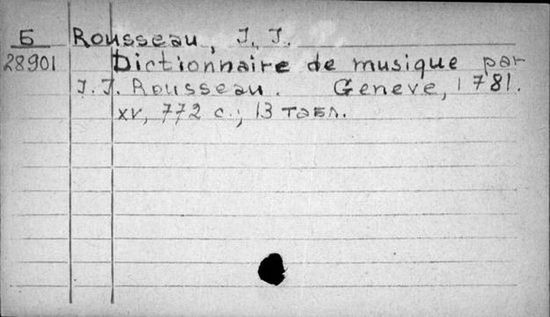 Б Rousseau, J. J.
28901 Dictionnaire de musique par
J. J. Rousseau. Geneve, 1781.
xv, 772 с.; 13 табл.